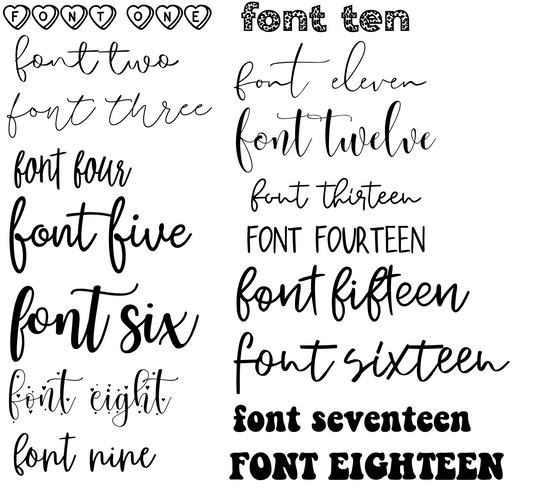 FONT ONE
font two
font three
font four
font five
font six
font eight
font nine
font ten
font eleven
font twelve
font thirteen
FONT FOURTEEN
font fifteen
font sixteen
font seventeen
FONT EIGHTEEN